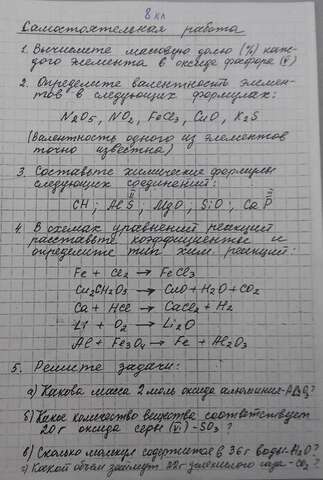 8 кл
Самостоятельная работа
1. Вычислите массовую долю (%) каж-
дого элемента в оксиде фосфора (V)
2. Определите валентность элемен-
тов в следующих формулах:
N2O5, NO2, FeCl3, CuO, K2S
(Валентность одного из элементов
точно известна)
3. Составьте химические формулы
следующих соединений:
CH; AlS; MgO; SiO; CaP
4. В схемах уравнений реакций
расставьте коэффициенты и
определите тип хим. реакций:
Fe + Cl2 → FeCl3
Cu2CH2O5 → CuO + H2O + CO2
Ca + HCl → CaCl2 + H2
Li + O2 → Li2O
Al + Fe3O4 → Fe + Al2O3
5. Решите задачи:
а) Какова масса 2 моль оксида алюминия - Al2O3?
б) Какое количество вещества соответствует
20 г оксида серы (VI) - SO3?
в) Сколько молекул содержится в 36 г воды - H2O?
г) Какой объем займут 22 г углекислого газа - CO2?